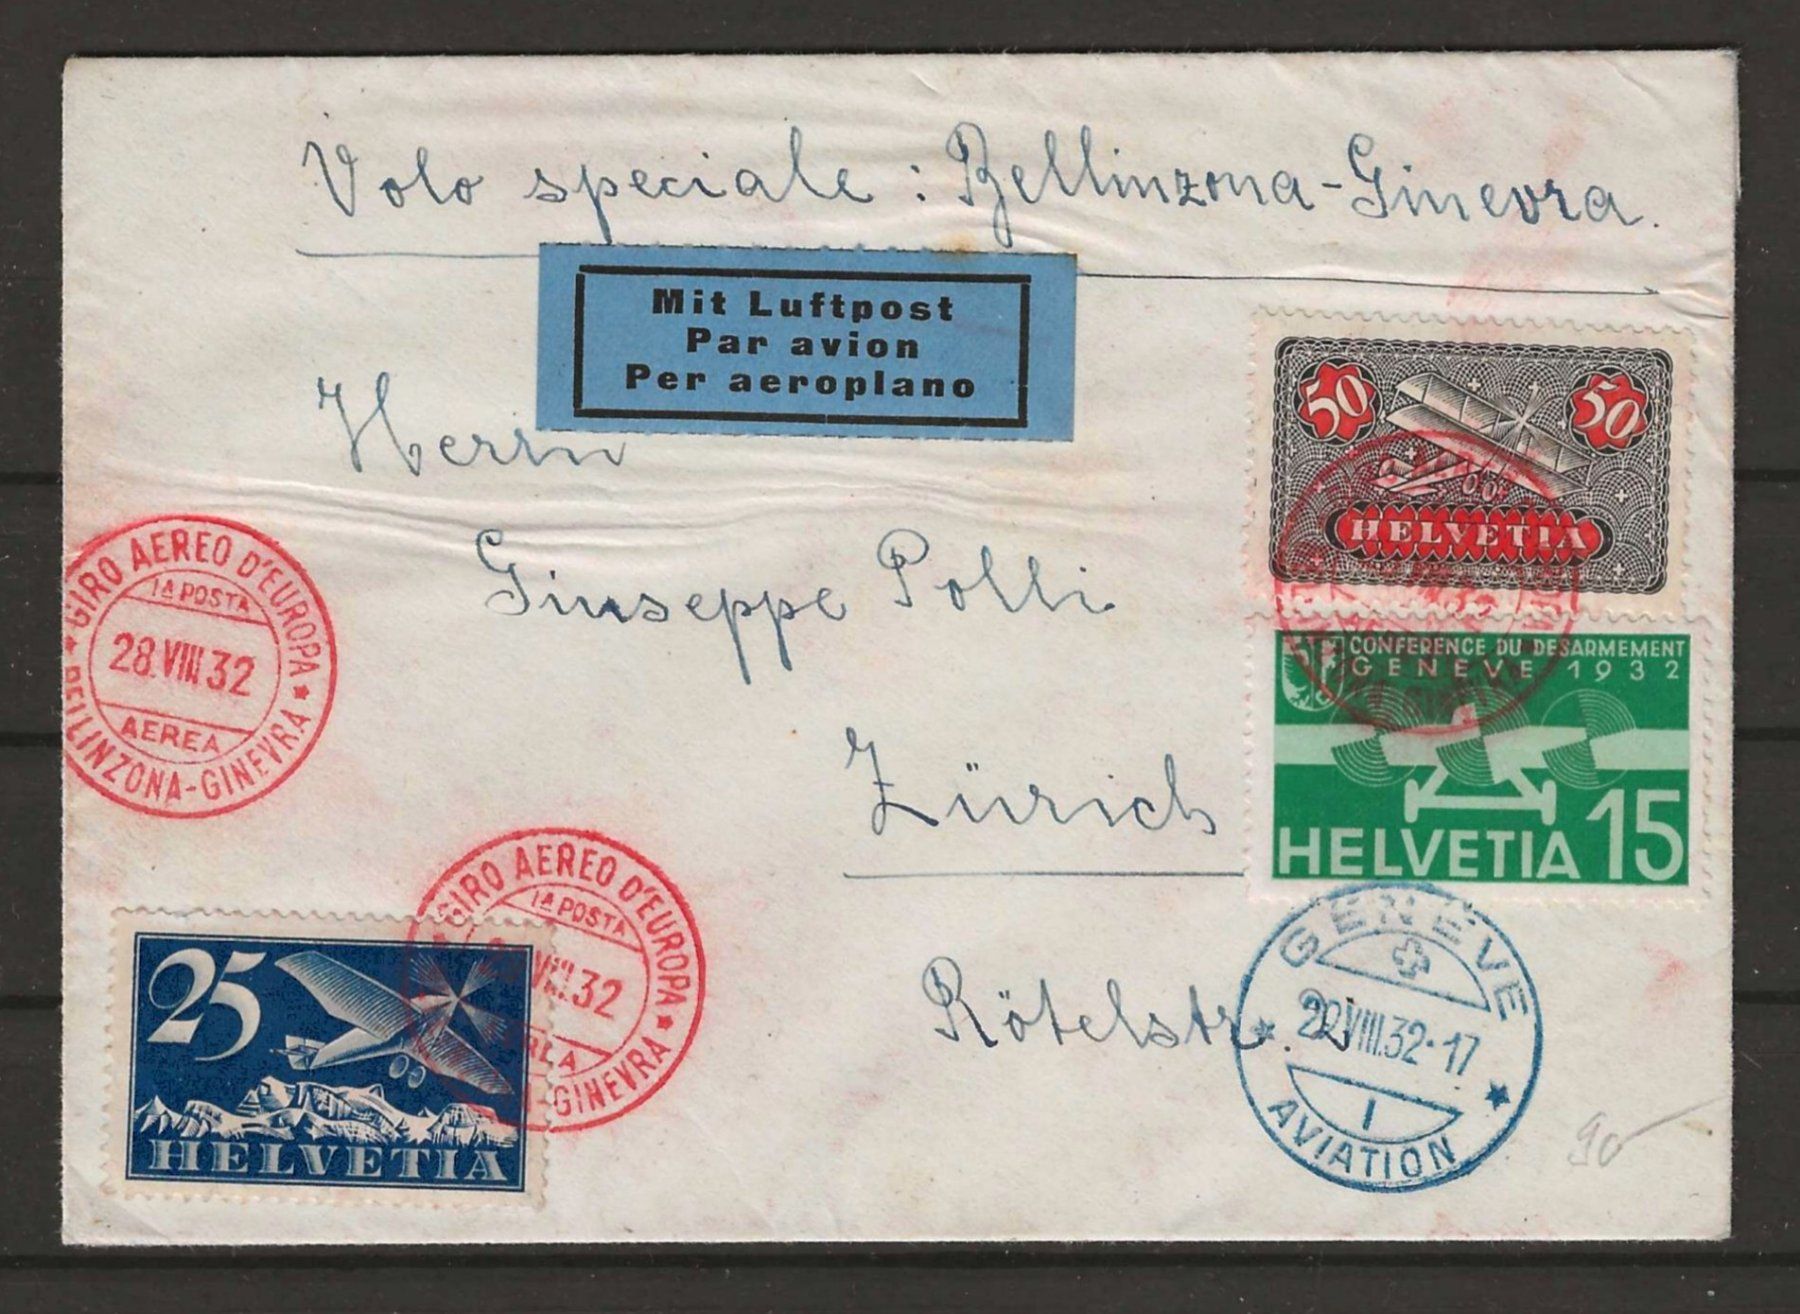 Volo speciale : Bellinzona-Ginevra.
Mit Luftpost
Par avion
Per aeroplano
Herrn
Giuseppe Polli
Zürich
Rötelstr.
50 50
HELVETIA
CONFERENCE DU DESARMEMENT
GENEVE 1932
HELVETIA 15
GIRO AEREO D'EUROPA
1A POSTA
28.VIII 32
AEREA
BELLINZONA-GINEVRA
25
HELVETIA
GIRO AEREO D'EUROPA
1A POSTA
VIII 32
-GINEVRA
GENÈVE
VIII.32-17
1
AVIATION
90